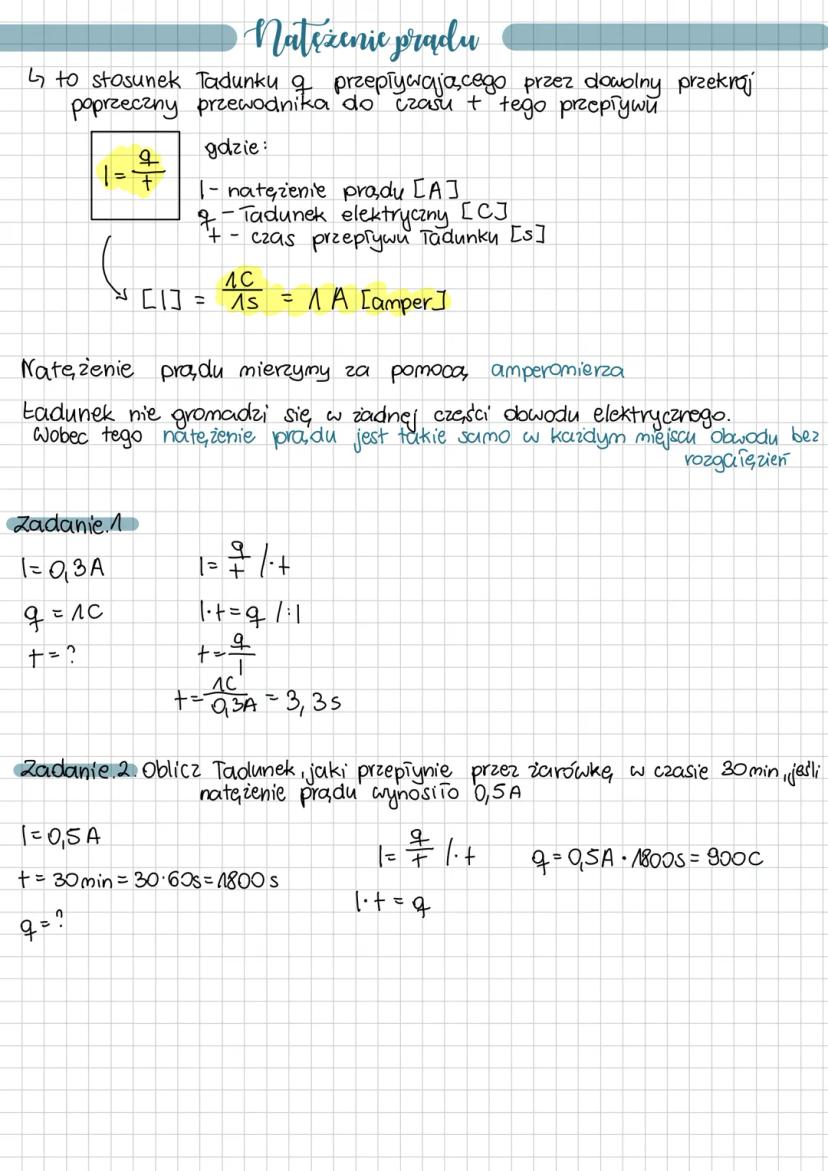 Natężenie prądu
↳ to stosunek ładunku q przepływającego przez dowolny przekrój
poprzeczny przewodnika do czasu t tego przepływu
I = q/t
gdzie:
I - natężenie prądu [A]
q - ładunek elektryczny [C]
t - czas przepływu ładunku [s]
[I] = 1C/1s = 1 A [amper]
Natężenie prądu mierzymy za pomocą amperomierza
Ładunek nie gromadzi się w żadnej części obwodu elektrycznego.
Wobec tego natężenie prądu jest takie samo w każdym miejscu obwodu bez
rozgałęzień
Zadanie.1
I = 0,3A
I = q/t /·t
q = 1C
I·t = q /:I
t = ?
t = q/I
t = 1C/0,3A = 3,3s
Zadanie.2. Oblicz ładunek, jaki przepłynie przez żarówkę w czasie 30min, jeśli
natężenie prądu wynosiło 0,5A
I = 0,5A
I = q/t /·t
q = 0,5A · 1800s = 900C
t = 30min = 30·60s = 1800s
I·t = q
q = ?